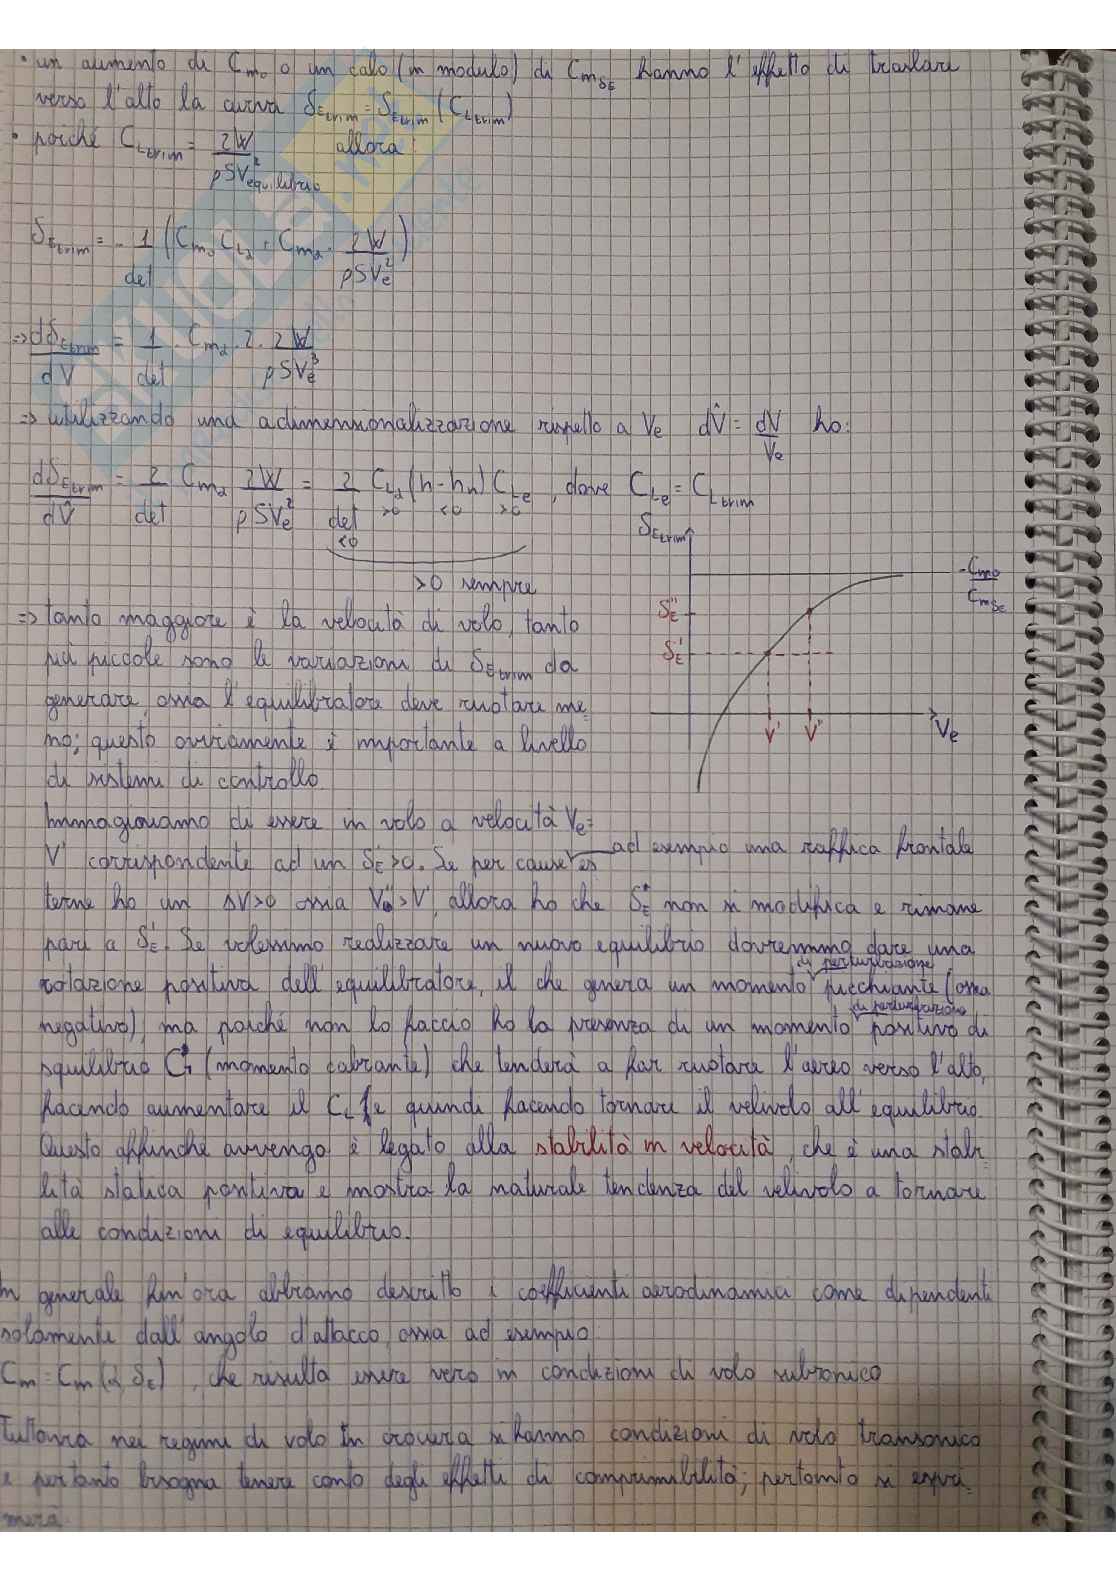 • un aumento di Cm₀ o un calo (in modulo) di CmδE hanno l'effetto di traslare
verso l'alto la curva δEtrim = δEtrim (CLtrim)
• poiché CLtrim = 2W / ρSV²equilibrio allora:
δEtrim = - 1/det (Cm₀ CLα + Cmα · 2W / ρSVe²)
=> dδEtrim / dV = 1/det · Cmα · 2 · 2W / ρSVe³
=> utilizzando una adimensionalizzazione rispetto a Ve dV̂ = dV/Ve ho:
dδEtrim / dV̂ = 2/det Cmα 2W / ρSVe² = 2/det CLα (h-hn) CLe , dove CLe = CLtrim
<0 >0 <0 >0
>0 sempre
δEtrim
-Cm₀ / CmδE
δE''
δE'
V' V'' Ve
=> tanto maggiore è la velocità di volo, tanto
più piccole sono le variazioni di δEtrim da
generare, ossia l'equilibratore deve ruotare me-
no; questo ovviamente è importante a livello
di sistemi di controllo
Immaginiamo di essere in volo a velocità Ve =
V' corrispondente ad un δE' >0. Se per cause es
ad esempio una raffica frontale
terne ho un ΔV>0 ossia V''>V', allora ho che δE non si modifica e rimane
pari a δE'. Se volessimo realizzare un nuovo equilibrio dovremmo dare una
rotazione positiva dell'equilibratore, il che genera un momento di perturbazione picchiante (ossia
negativo), ma poiché non lo faccio ho la presenza di un momento di perturbazione positivo di
squilibrio (momento cabrante) che tenderà a far ruotare l'aereo verso l'alto,
facendo aumentare il CL e quindi facendo tornare il velivolo all'equilibrio.
Questo affinché avvenga è legato alla stabilità in velocità, che è una stabi-
lità statica positiva e mostra la naturale tendenza del velivolo a tornare
alle condizioni di equilibrio.
In generale fin'ora abbiamo descritto i coefficienti aerodinamici come dipendenti
solamente dall'angolo d'attacco, ossia ad esempio:
Cm = Cm (α, δE) , che risulta essere vero in condizioni di volo subsonico
Tuttavia nei regimi di volo in crociera si hanno condizioni di volo transonico
e pertanto bisogna tenere conto degli effetti di comprimibilità; pertanto si espri-
merà: